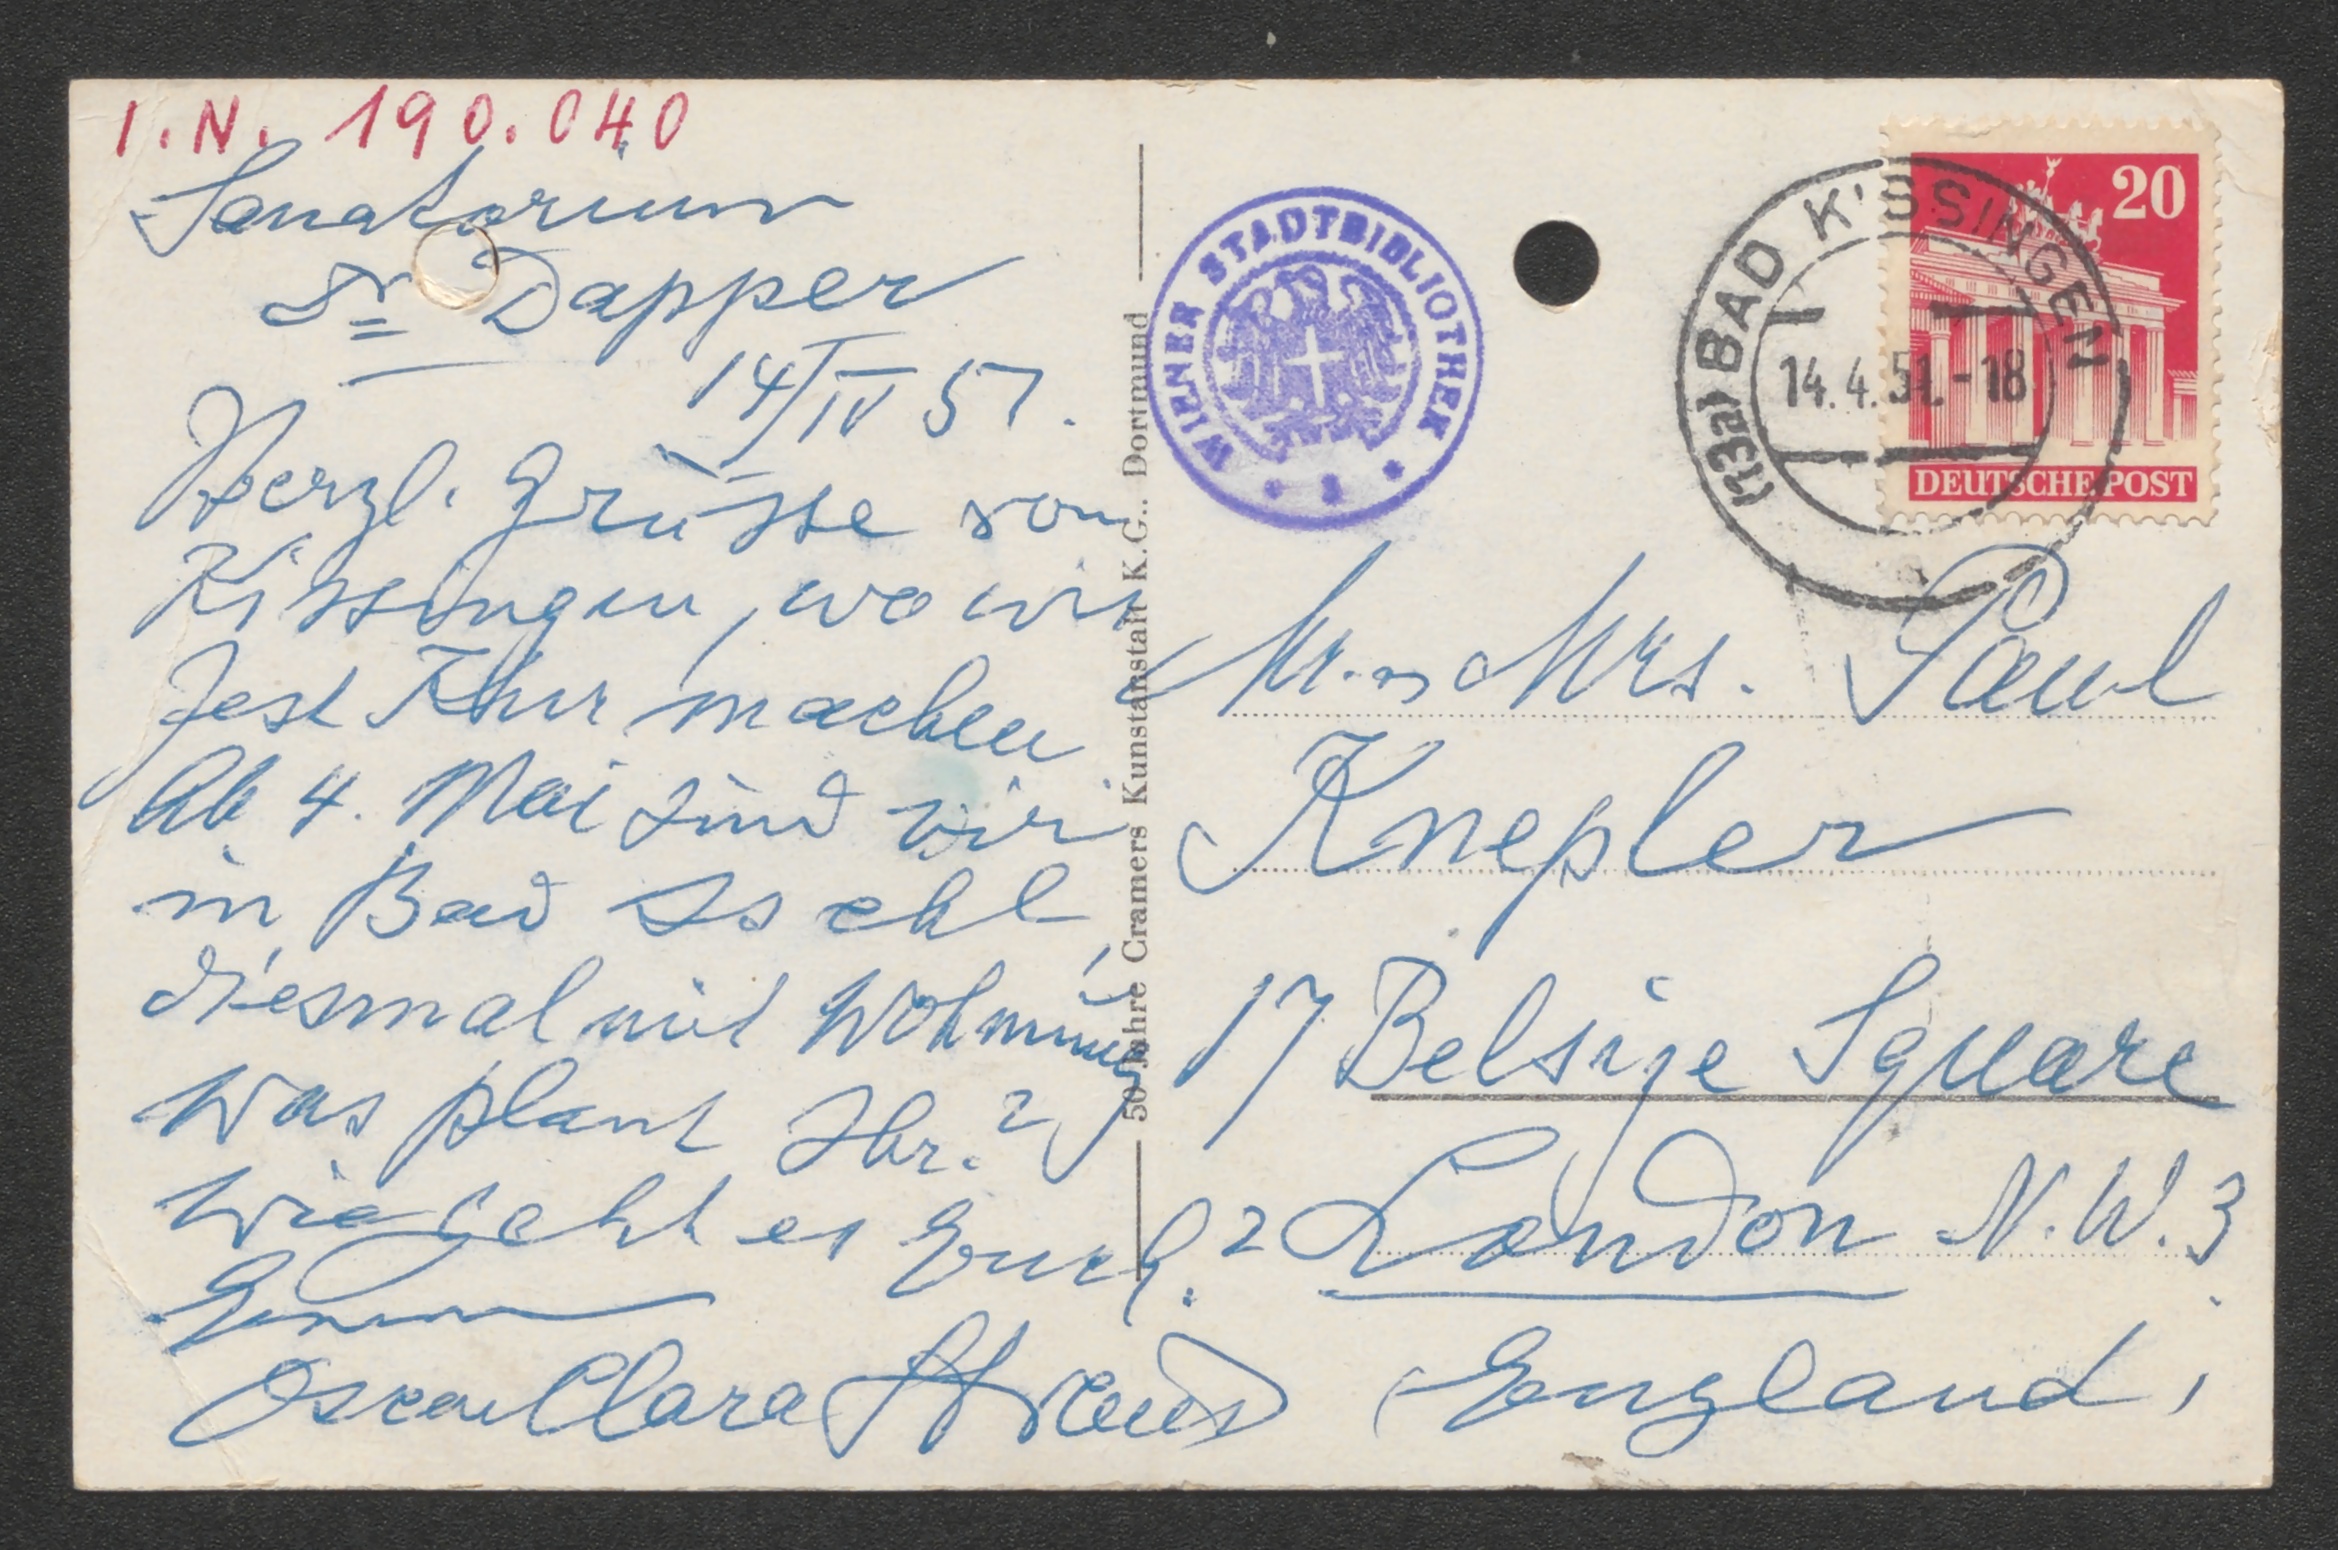 I.N. 190.040
Sanatorium
Dr Dapper
14/IV 51.
Herzl. Grüsse von
Kissingen, wo wir
jest Khur machen
Ab 4. Mai sind wir
in Bad Ischl,
diesmal mit Wohnung
Was plant Ihr?
Wie geht es Euch?
Oscar Clara Straus
50 Jahre Cramers Kunstanstalt K.G., Dortmund
WIENER STADTBIBLIOTHEK
(13a) BAD KISSINGEN
14.4.51.-18
20
DEUTSCHE POST
Mr. Mrs. Paul
Knepler
17 Belsize Square
London N.W.3
England